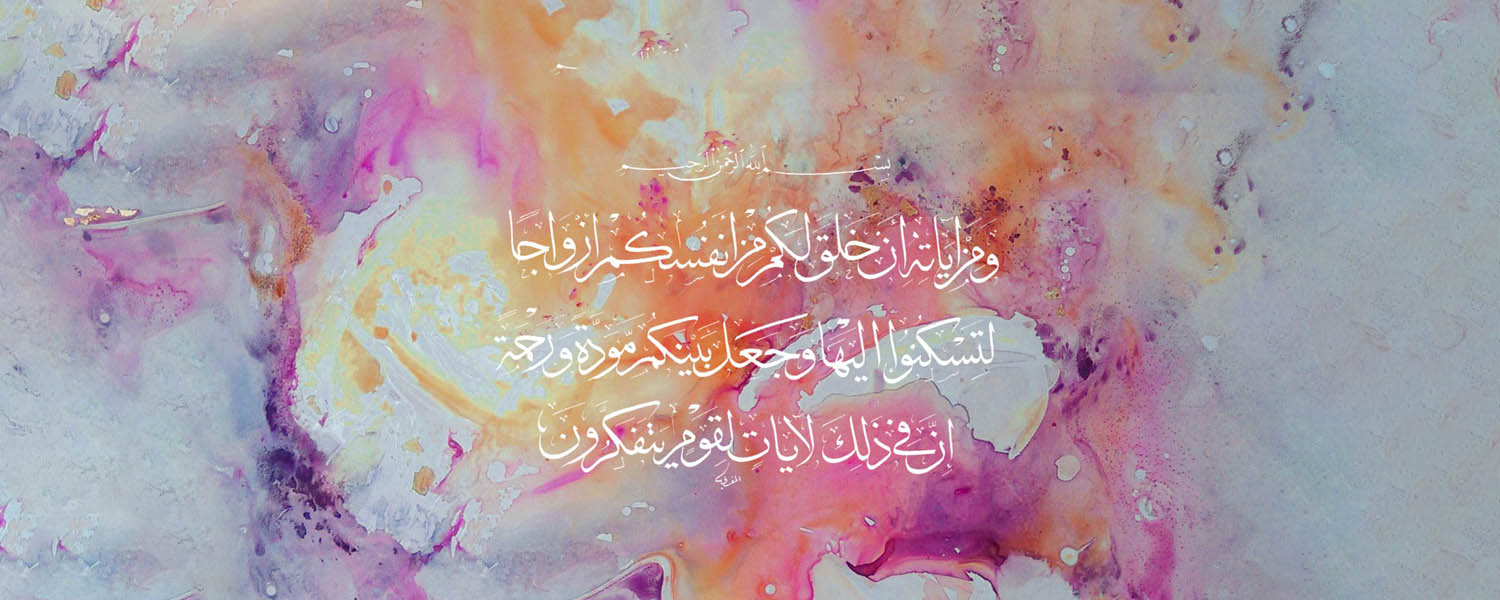 بسم الله الرحمن الرحيم
وَمِنْ آيَاتِهِ أَنْ خَلَقَ لَكُمْ مِنْ أَنفُسِكُمْ أَزْوَاجًا
لِتَسْكُنُوا إِلَيْهَا وَجَعَلَ بَيْنَكُمْ مَوَدَّةً وَرَحْمَةً
إِنَّ فِي ذَلِكَ لَآيَاتٍ لِقَوْمٍ يَتَفَكَّرُونَ